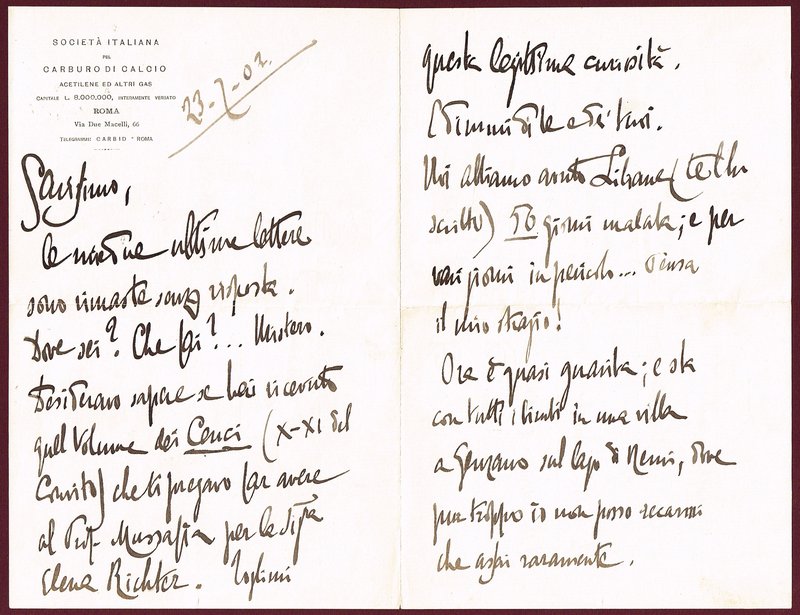 SOCIETÀ ITALIANA
PEL
CARBURO DI CALCIO
ACETILENE ED ALTRI GAS
CAPITALE L. 8.000.000, INTERAMENTE VERSATO
ROMA
Via Due Macelli, 66
TELEGRAMMI: CARBID - ROMA
23-7-02
Carissimo,
le mie due ultime lettere
sono rimaste senza risposta.
Dove sei? Che fai?... Mistero.
Desideravo sapere se hai ricevuto
quel volume dei Cenci (X-XI del
Convito) che ti pregavo far avere
al Prof. Mussafia per la Sig.ra
Elena Richter. Toglimi
questa legittima curiosità.
E dimmi di te e de' tuoi.
Noi abbiamo avuto Liliana (te l'ho
scritto) 56 giorni malata; e per
vari giorni in pericolo... Pensa
il mio strazio!
Ora è quasi guarita; e sta
con tutti i bimbi in una villa
a Genzano sul lago di Nemi, dove
pur troppo io non posso recarmi
che assai raramente.